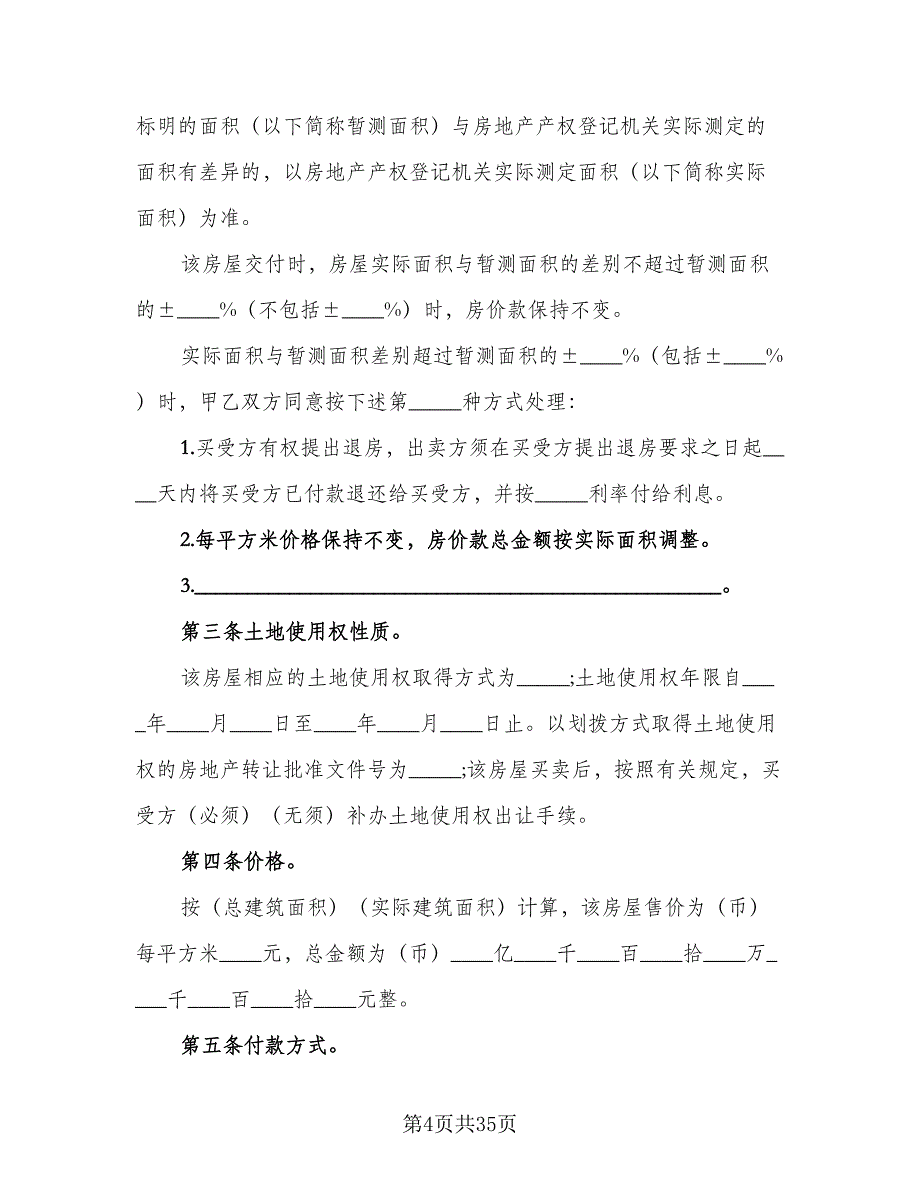 标明的面积（以下简称暂测面积）与房地产产权登记机关实际测定的
面积有差异的，以房地产产权登记机关实际测定面积（以下简称实际
面积）为准。
该房屋交付时，房屋实际面积与暂测面积的差别不超过暂测面积
的±____%（不包括±____%）时，房价款保持不变。
实际面积与暂测面积差别超过暂测面积的±____%（包括±____%
）时，甲乙双方同意按下述第_____种方式处理：
1.买受方有权提出退房，出卖方须在买受方提出退房要求之日起__
__天内将买受方已付款退还给买受方，并按_____利率付给利息。
2.每平方米价格保持不变，房价款总金额按实际面积调整。
3.__________________________________________________。
第三条土地使用权性质。
该房屋相应的土地使用权取得方式为_____;土地使用权年限自___
_年____月____日至____年____月____日止。以划拨方式取得土地使用
权的房地产转让批准文件号为_____;该房屋买卖后，按照有关规定，买
受方（必须）（无须）补办土地使用权出让手续。
第四条价格。
按（总建筑面积）（实际建筑面积）计算，该房屋售价为（币）
每平方米____元，总金额为（币）____亿____千____百____拾____万_
___千____百____拾____元整。
第五条付款方式。
第4页共35页